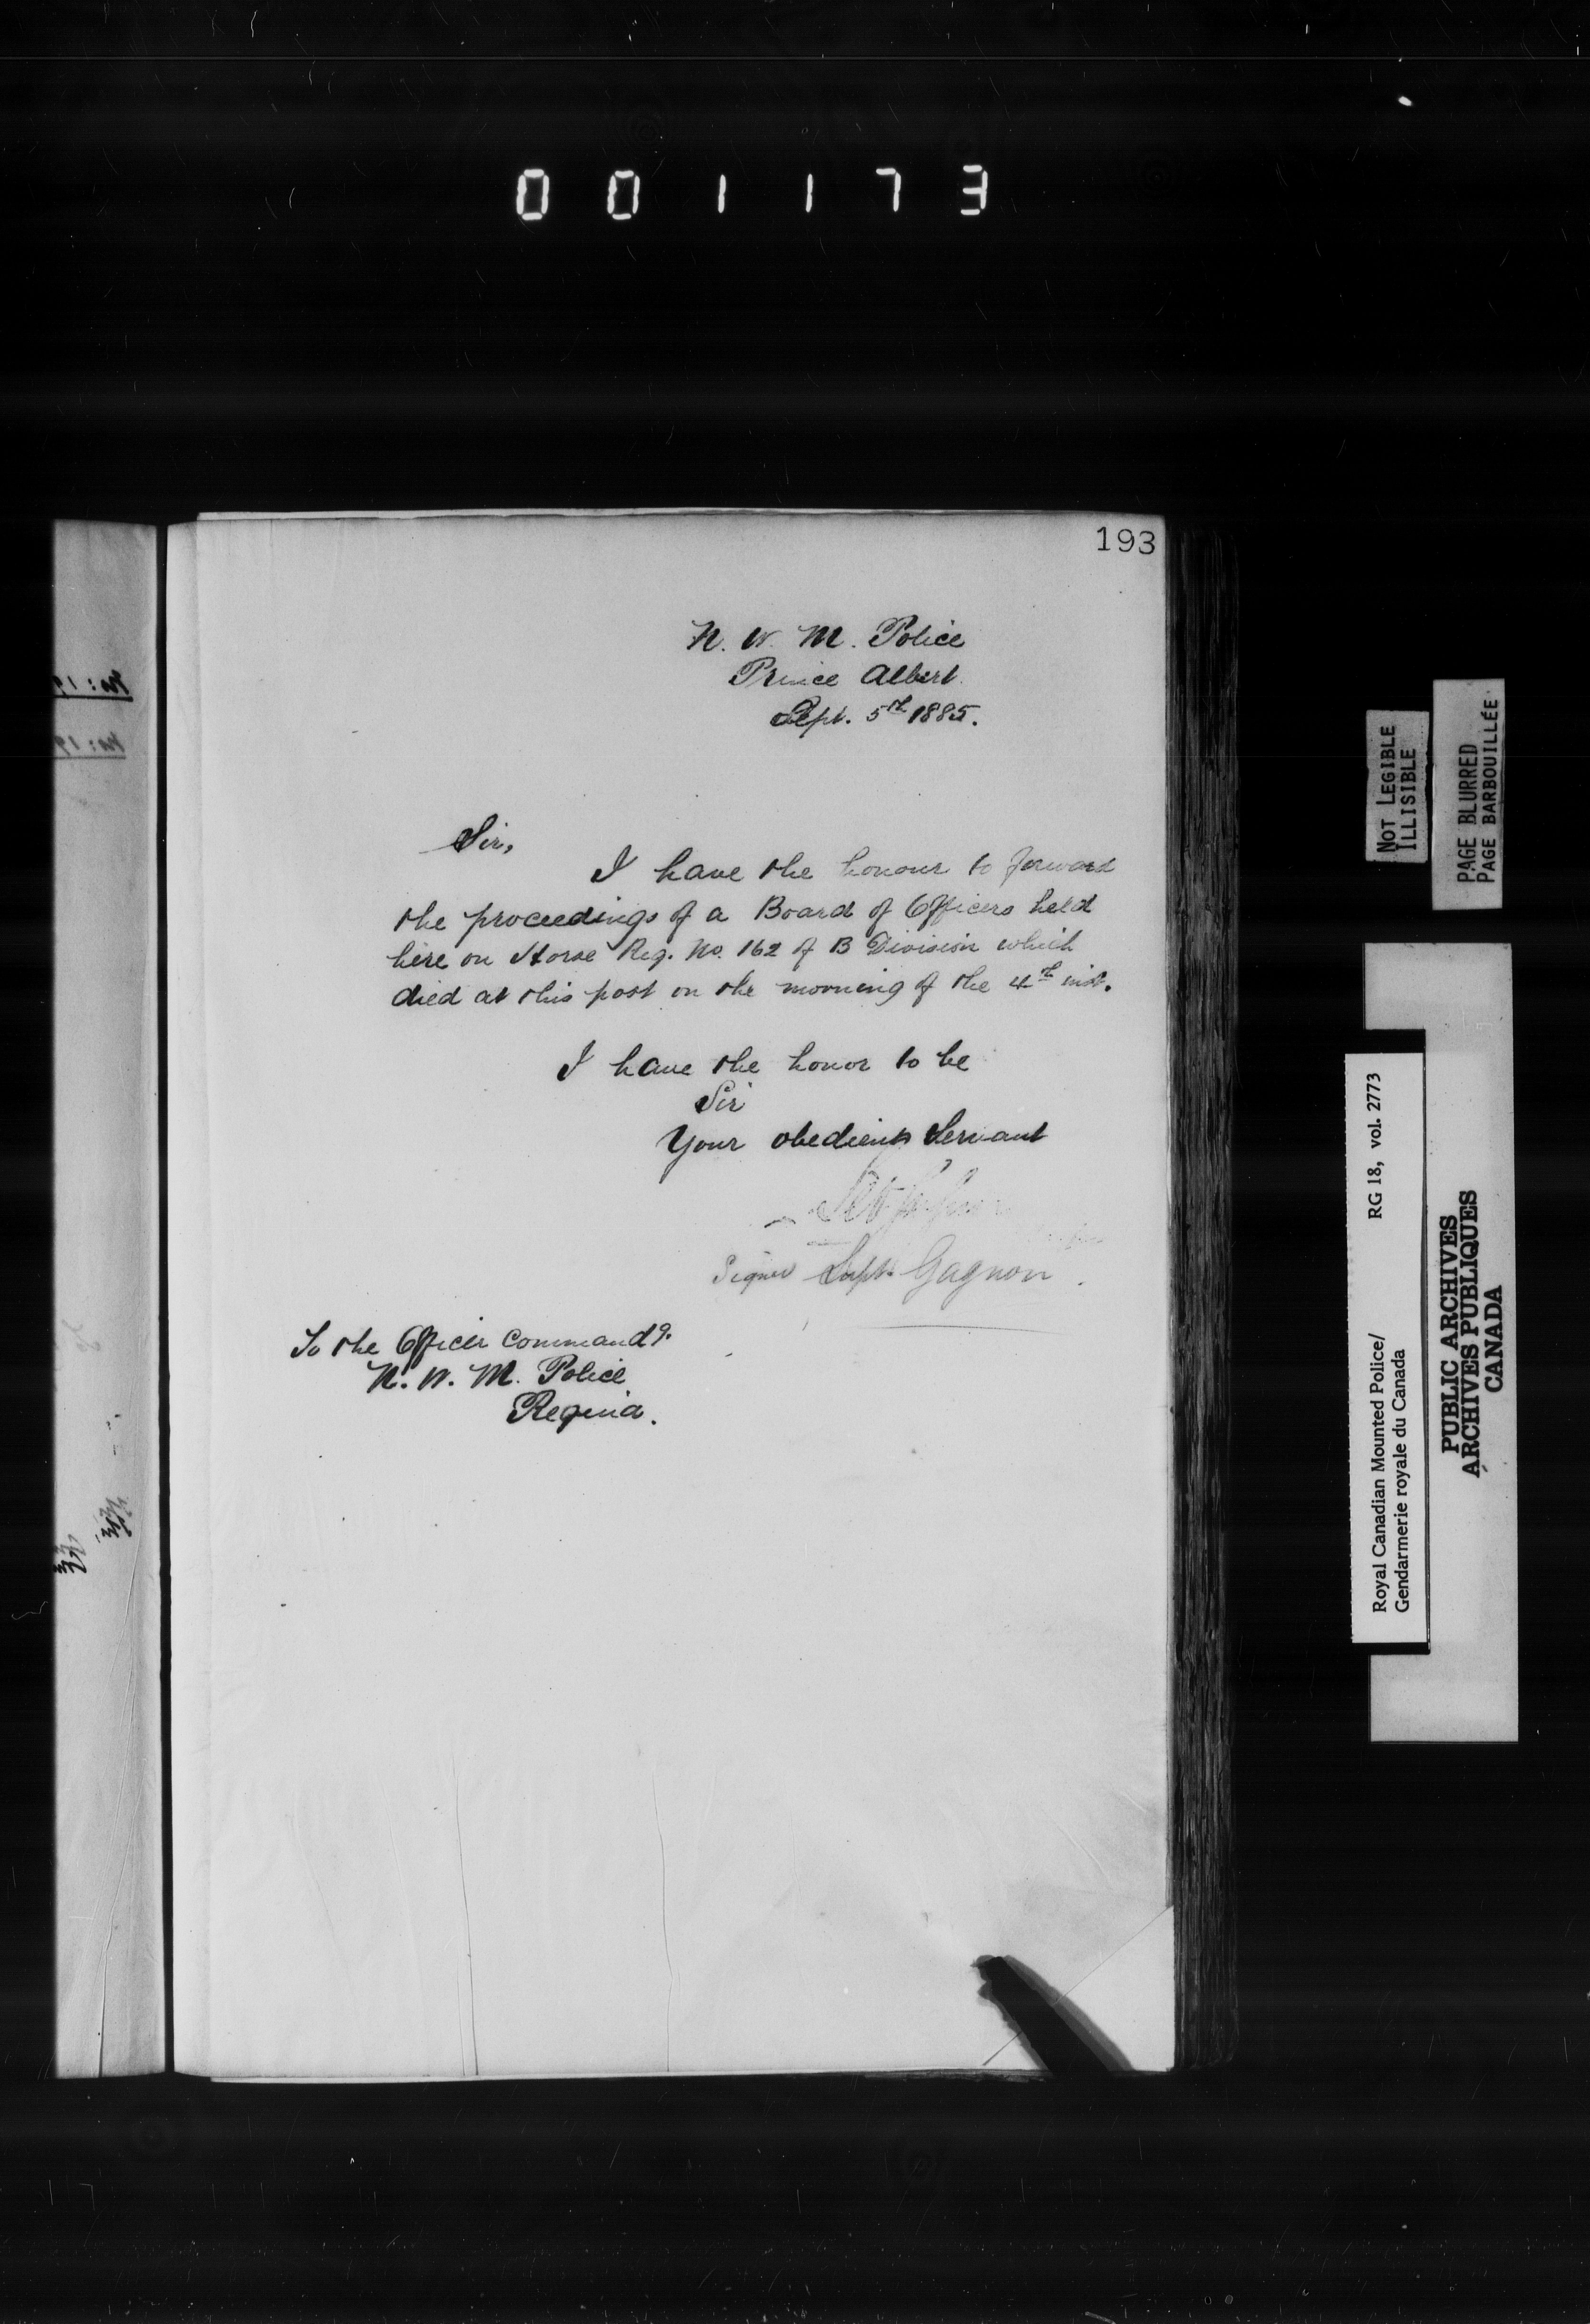 001173
193
N. W. M. Police
Prince Albert
Sept. 5th 1885.
Sir,
I have the honour to forward
the proceedings of a Board of Officers held
here on Horse Reg. No. 162 of B Division which
died at this post on the morning of the 4th inst.
I have the honor to be
Sir
Your obedient Servant
Signed Supt. Gagnon
To the Officer Commandg.
N. W. M. Police
Regina.
NOT LEGIBLE
ILLISIBLE
PAGE BLURRED
PAGE BARBOUILLÉE
Royal Canadian Mounted Police/ RG 18, vol. 2773
Gendarmerie royale du Canada
PUBLIC ARCHIVES
ARCHIVES PUBLIQUES
CANADA